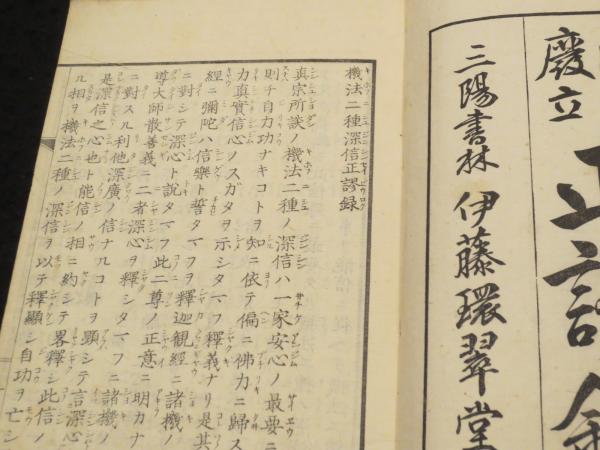 廢立
三陽書林 伊藤環翠堂
機法二種深信正謬録
真宗所談ノ機法二種ノ深信ハ一家安心ノ最要ニ
則チ自力功ナキコトヲ知ニ依テ偏ニ佛力ニ歸ス
力真實信心ノスガタヲ示シタマフ釋義ナリ是其
經ニ彌陀ハ信樂ト誓タマフ釋迦觀經ニ諸機ノ
ニ對シテ深心ト說タマフ此二尊ノ正意ニ明カナ
導大師散善義ニ二者深心ヲ釋シタマフニ諸機ノ
ニ對スル利他深廣ノ信ナルコトヲ顯シテ言深心
是深信之心也ト能信ノ相ニ約シテ畧釋シ此信ノ
ル相ヲ機法二種ノ深信ヲ以テ釋顯シ自功ヲ亡シ